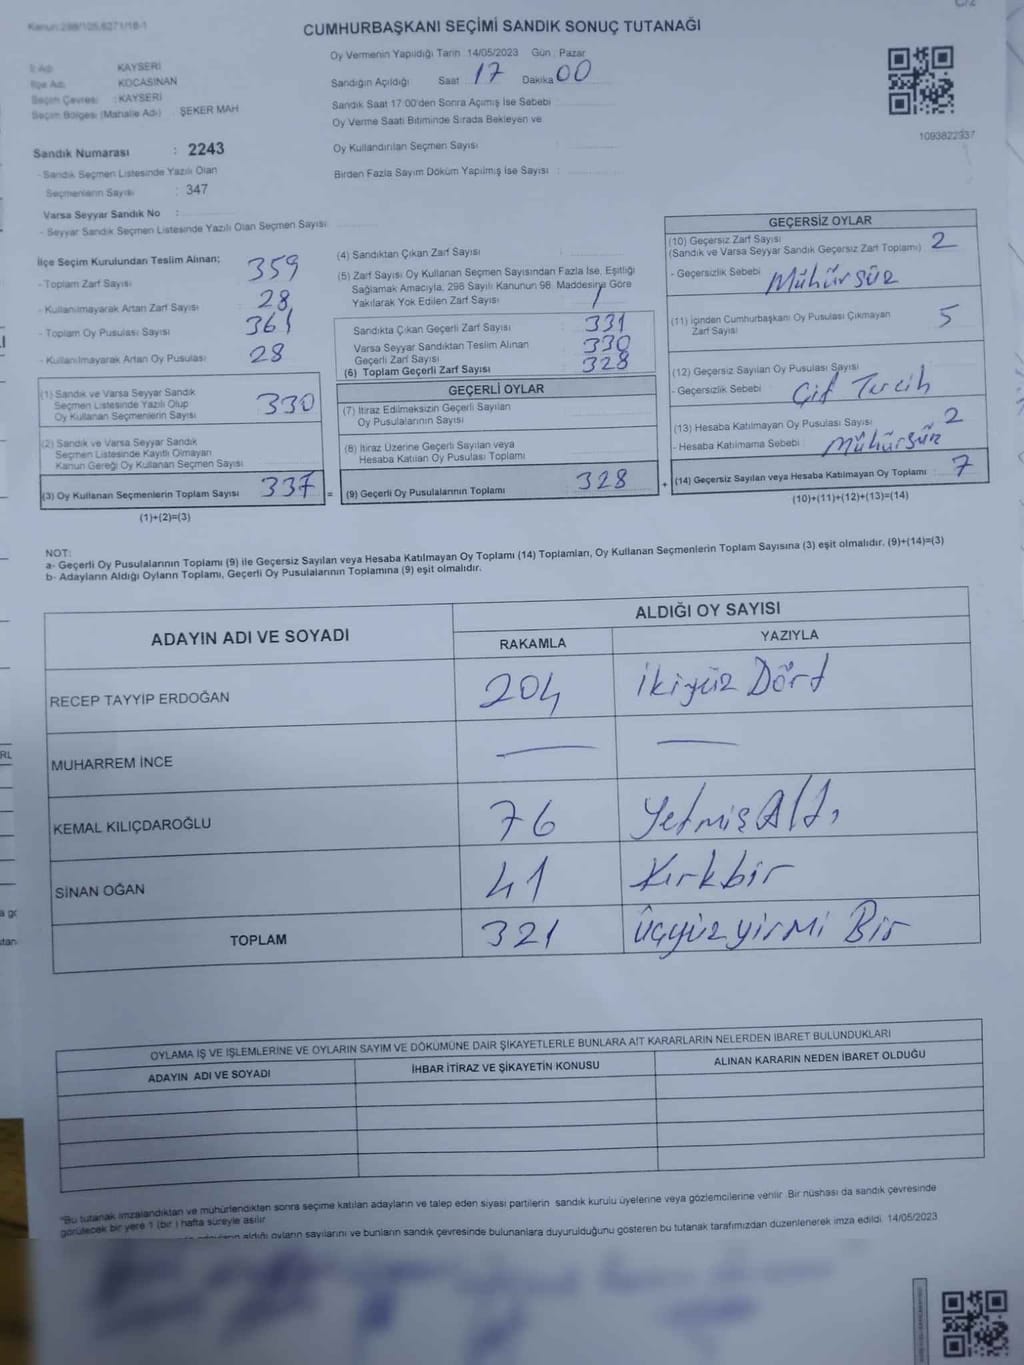 Kanun:298/105,6271/18-1
C/2
CUMHURBAŞKANI SEÇİMİ SANDIK SONUÇ TUTANAĞI
İl Adı : KAYSERİ
İlçe Adı : KOCASİNAN
Seçim Çevresi : KAYSERİ
Seçim Bölgesi (Mahalle Adı) : ŞEKER MAH
Sandık Numarası : 2243
- Sandık Seçmen Listesinde Yazılı Olan
Seçmenlerin Sayısı : 347
Varsa Seyyar Sandık No :
- Seyyar Sandık Seçmen Listesinde Yazılı Olan Seçmen Sayısı:
Oy Vermenin Yapıldığı Tarih : 14/05/2023 Gün : Pazar
Sandığın Açıldığı Saat : 17 Dakika 00
Sandık Saat 17:00'den Sonra Açımış İse Sebebi
Oy Verme Saati Bitiminde Sırada Bekleyen ve
Oy Kullandırılan Seçmen Sayısı :
Birden Fazla Sayım Döküm Yapılmış İse Sayısı :
1093822337
İlçe Seçim Kurulundan Teslim Alınan;
- Toplam Zarf Sayısı : 359
- Kullanılmayarak Artan Zarf Sayısı : 28
- Toplam Oy Pusulası Sayısı : 361
- Kullanılmayarak Artan Oy Pusulası : 28
(1) Sandık ve Varsa Seyyar Sandık
Seçmen Listesinde Yazılı Olup
Oy Kullanan Seçmenlerin Sayısı : 330
(2) Sandık ve Varsa Seyyar Sandık
Seçmen Listesinde Kayıtlı Olmayan
Kanun Gereği Oy Kullanan Seçmen Sayısı
(3) Oy Kullanan Seçmenlerin Toplam Sayısı : 337 =
(1)+(2)=(3)
(4) Sandıktan Çıkan Zarf Sayısı
(5) Zarf Sayısı Oy Kullanan Seçmen Sayısından Fazla İse, Eşitliği
Sağlamak Amacıyla, 298 Sayılı Kanunun 98. Maddesine Göre
Yakılarak Yok Edilen Zarf Sayısı : 1
Sandıkta Çıkan Geçerli Zarf Sayısı : 331
Varsa Seyyar Sandıktan Teslim Alınan
Geçerli Zarf Sayısı : 330
(6) Toplam Geçerli Zarf Sayısı : 328
GEÇERLİ OYLAR
(7) İtiraz Edilmeksizin Geçerli Sayılan
Oy Pusulalarının Sayısı
(8) İtiraz Üzerine Geçerli Sayılan veya
Hesaba Katılan Oy Pusulası Toplamı
(9) Geçerli Oy Pusulalarının Toplamı : 328 +
GEÇERSİZ OYLAR
(10) Geçersiz Zarf Sayısı
(Sandık ve Varsa Seyyar Sandık Geçersiz Zarf Toplamı) : 2
- Geçersizlik Sebebi : Mühürsüz
(11) İçinden Cumhurbaşkanı Oy Pusulası Çıkmayan
Zarf Sayısı : 5
(12) Geçersiz Sayılan Oy Pusulası Sayısı :
- Geçersizlik Sebebi : Çif Tercih
(13) Hesaba Katılmayan Oy Pusulası Sayısı : 2
- Hesaba Katılmama Sebebi : Mühürsüz
(14) Geçersiz Sayılan veya Hesaba Katılmayan Oy Toplamı : 7
(10)+(11)+(12)+(13)=(14)
NOT:
a- Geçerli Oy Pusulalarının Toplamı (9) ile Geçersiz Sayılan veya Hesaba Katılmayan Oy Toplamı (14) Toplamları, Oy Kullanan Seçmenlerin Toplam Sayısına (3) eşit olmalıdır. (9)+(14)=(3)
b- Adayların Aldığı Oyların Toplamı, Geçerli Oy Pusulalarının Toplamına (9) eşit olmalıdır.
ADAYIN ADI VE SOYADI
ALDIĞI OY SAYISI
RAKAMLA YAZIYLA
RECEP TAYYİP ERDOĞAN 204 İkiyüz Dört
MUHARREM İNCE — —
KEMAL KILIÇDAROĞLU 76 Yetmiş Altı
SİNAN OĞAN 41 Kırkbir
TOPLAM 321 Üçyüzyirmi Bir
OYLAMA İŞ VE İŞLEMLERİNE VE OYLARIN SAYIM VE DÖKÜMÜNE DAİR ŞİKAYETLERLE BUNLARA AİT KARARLARIN NELERDEN İBARET BULUNDUKLARI
ADAYIN ADI VE SOYADI İHBAR İTİRAZ VE ŞİKAYETİN KONUSU ALINAN KARARIN NEDEN İBARET OLDUĞU
"Bu tutanak imzalandıktan ve mühürlendikten sonra seçime katılan adayların ve talep eden siyasi partilerin sandık kurulu üyelerine veya gözlemcilerine verilir. Bir nüshası da sandık çevresinde
görülecek bir yere 1 (bir ) hafta süreyle asılır.
aldığı oyların sayılarını ve bunların sandık çevresinde bulunanlara duyurulduğunu gösteren bu tutanak tarafımızdan düzenlenerek imza edildi. 14/05/2023